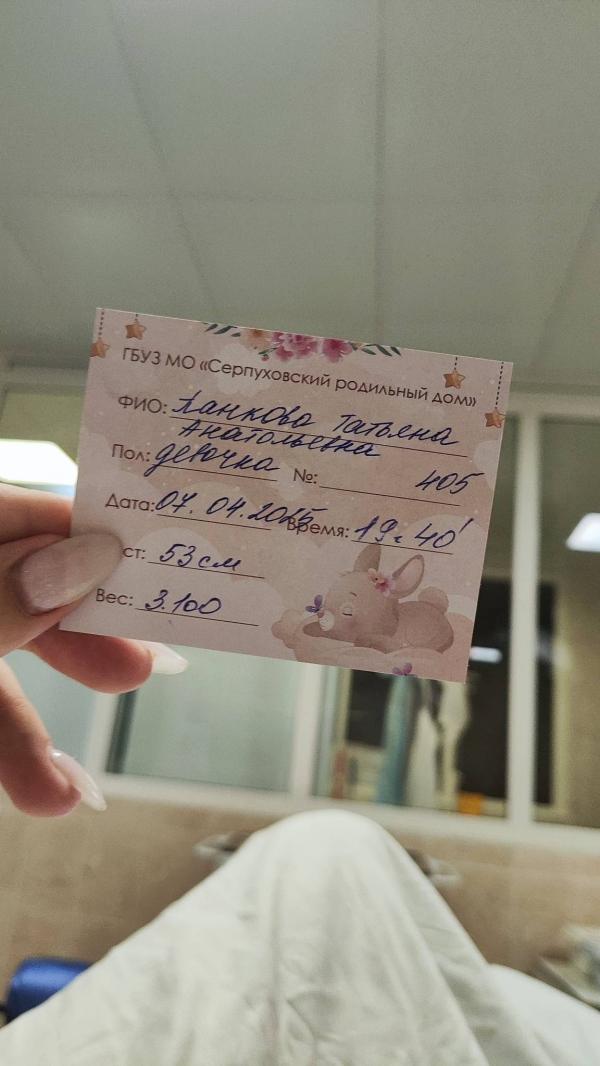 ГБУЗ МО «Серпуховский родильный дом»
ФИО: Панкова Татьяна
Анатольевна
Пол: девочка №: 405
Дата: 07.04.2025 Время: 19ч 40'
ст: 53 см
Вес: 3.100